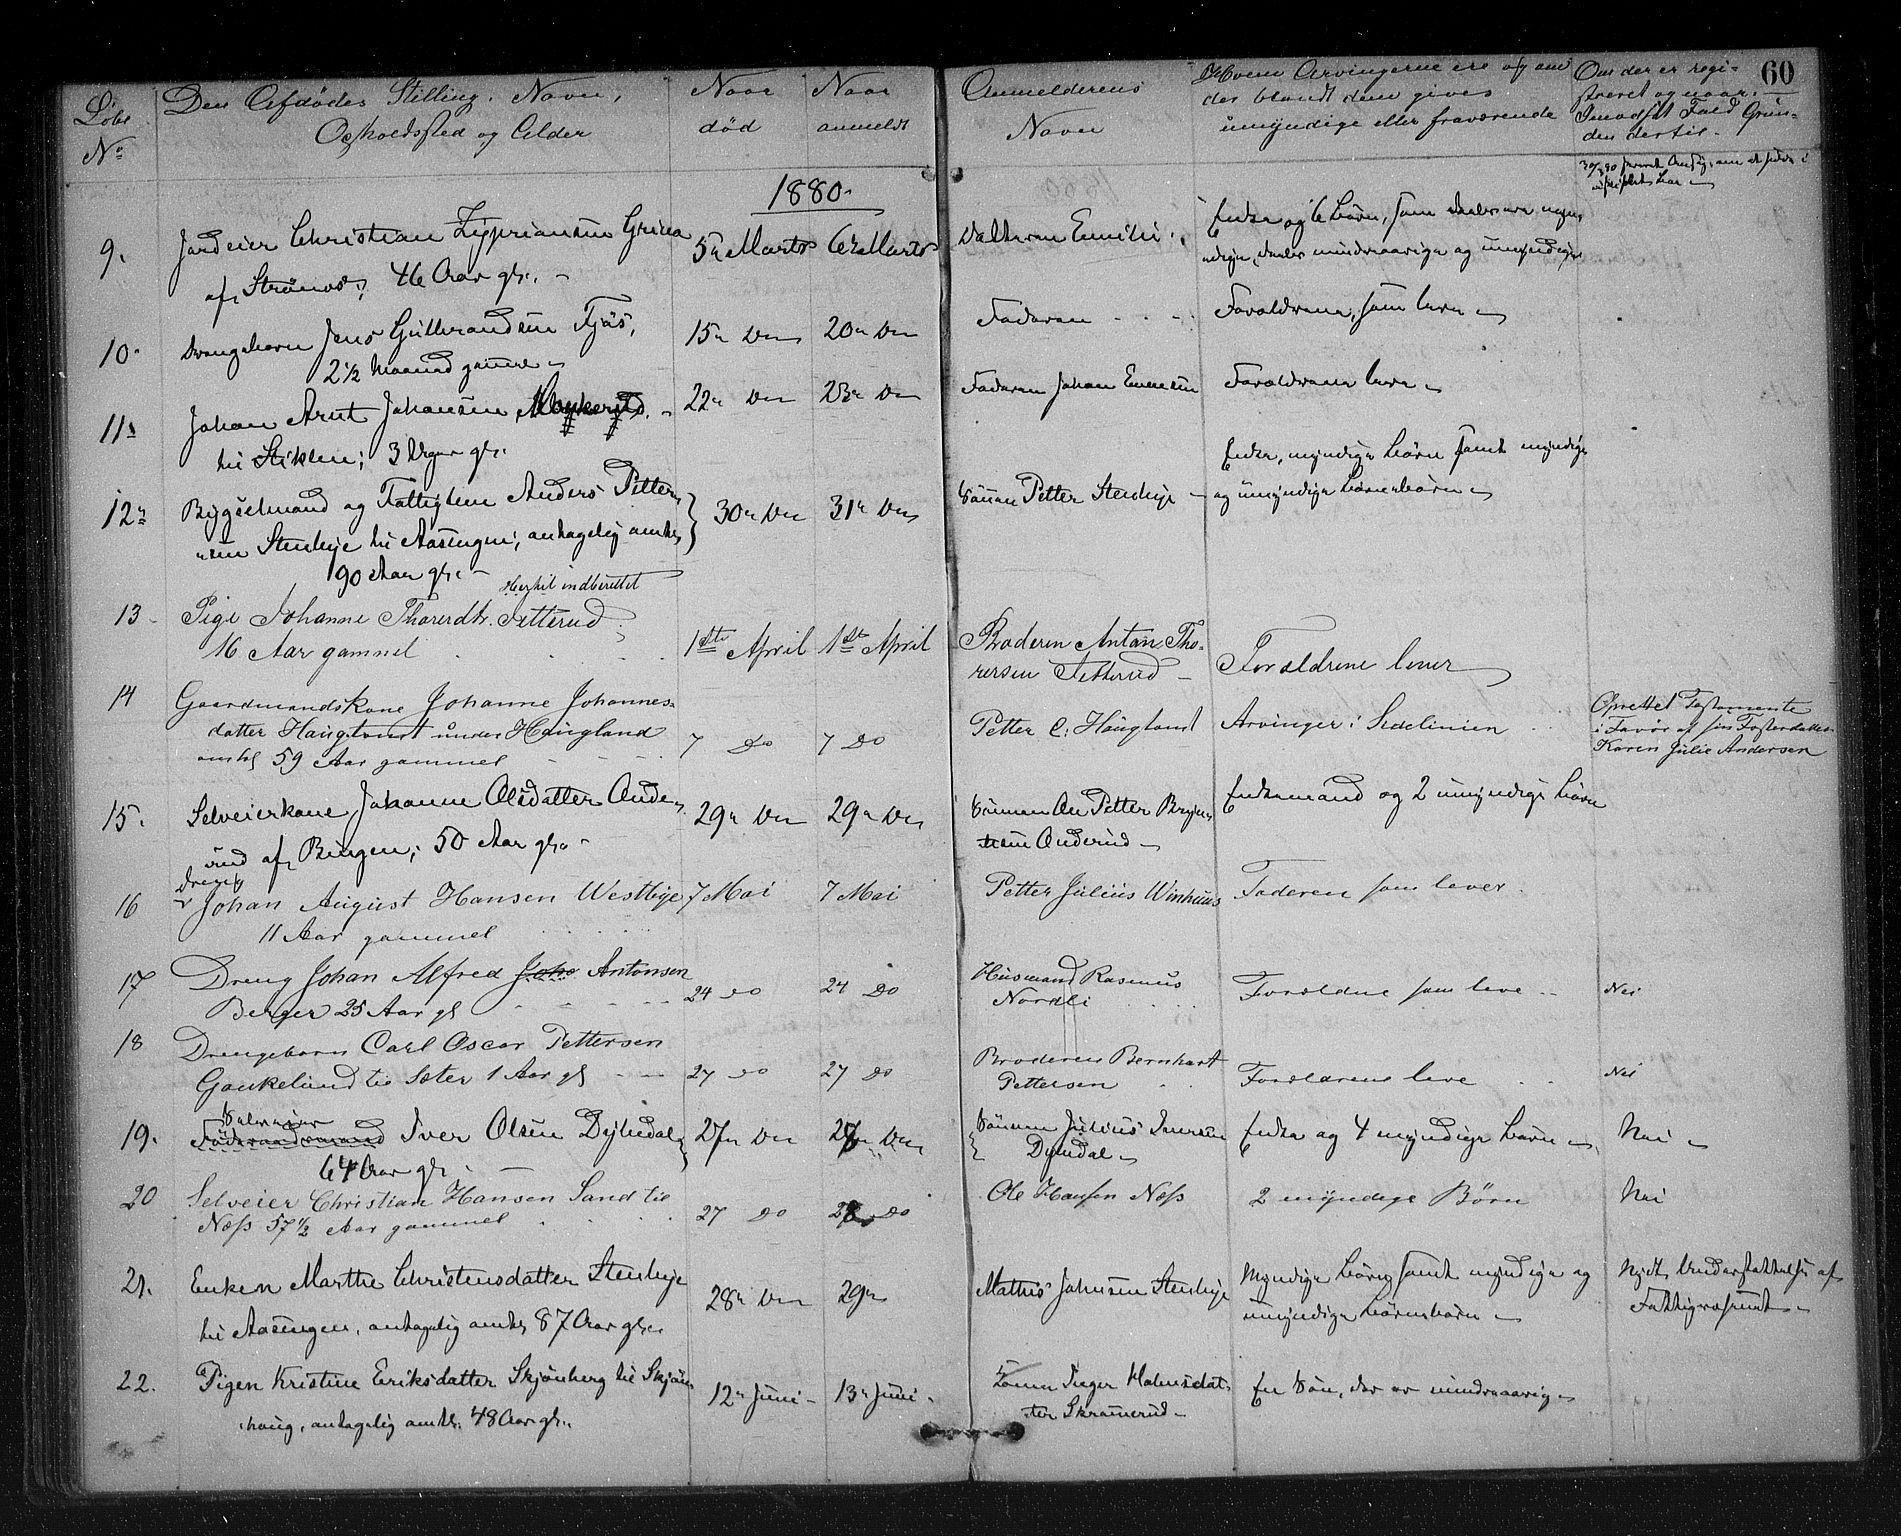 60
Løbe No
Den Afdødes Stilling, Navn,
Opholdssted og Alder
Naar død
Naar anmeldt
Anmelderens Navn
Hvem Arvingerne ere og om
der blandt dem gives
umyndige eller fraværende
Om der er regi-
streret og naar.
I modsat Fald Grun-
den dertil.
1880.
9. Jordeier Christian Zypriansen
af Strømsø, 46 Aar gl.
5te Marts 6te Marts
Datteren Emilie
Enke og 6 Børn, som deels ere myn-
dige, deels mindreaarige og umyndige
10. Drengebarn Jens Gulbrandsen
2 1/2 Maaned gammel
15de Do 20de Do
Faderen
Forældrene, som leve
11. Johan Arnt Johansen
til Stiklen; 3 Uger gl.
22de Do 23de Do
Faderen Johan
Forældrene leve
12. Bygselmand og Fattiglem Anders Petter-
sen Stenhye til Aasengen; antagelig omtr.
90 Aar gl.
30te Do 31te Do
Sønnen Petter Stenhye
Enke, myndige Børn samt myndige
og umyndige Børnebørn
Hertil indberettet
13 Pige Johanne Thorerdtr. Tetterud
16 Aar gammel
1ste April 1ste April
Broderen Anton Tho-
rersen Tetterud
Forældrene lever
14 Gaardmandskone Johanne Johannes-
datter Haugtomt under Haugland
omtr 59 Aar gammel
7 Do 7 Do
Petter C. Haugland
Arvinger i Sidelinien
Oprettet Testamente
i Favør af sin Fosterdatter
Karen Julie Andersen
15. Selveierkone Johanne Olsdatter Ande-
rud af Bingen; 50 Aar gl.
29de Do 29de Do
Sønnen Petter
Anderud
Enkemand og 2 umyndige Børn
16 Dreng
Johan August Hansen Westbye
11 Aar gammel
7 Mai 7 Mai
Petter Julius
Faderen som lever.
17 Dreng Johan Alfred Joh Antonsen
Berger 25 Aar gl
24 Do 24 Do
Husmand Rasmus
Nordli
Forældrene som leve
Nei
18 Drengebarn Carl Oscar Pettersen
Gaukelund til Sæter 1 Aar gl
27 Do 27 Do
Broderen Bernhart
Pettersen
Forældrene leve
Nei
19. Selveier
Føderaadsmand Iver Olsen Dyhdal
64 Aar gl.
27de Do 28de Do
Sønnen Julius Iversen
Dyhdal
Enke og 4 myndige Børn
Nei
20 Selveier Christian Hansen Sand til
Næss 57 1/2 Aar gammel
27 Do 28 Do
Ole Hansen Næss
2 myndige Børn
Nei
21. Enken Marthe Christensdatter Stenhye
til Aasengen, antagelig omtr 87 Aar gl.
28de Do 29de
Mathis Johnsen Stenhye
Myndige Børn samt myndige og
umyndige Børnebørn
Nydt Understøttelse af
Fattigvæsenet
22. Pigen Kristine Eriksdatter Skjønberg til Skjøn-
haug, antagelig omtr. 48 Aar gl.
12te Juni 13te Juni
Inger Halvorsdat-
ter Skramerud
En Søn, der er mindreaarig